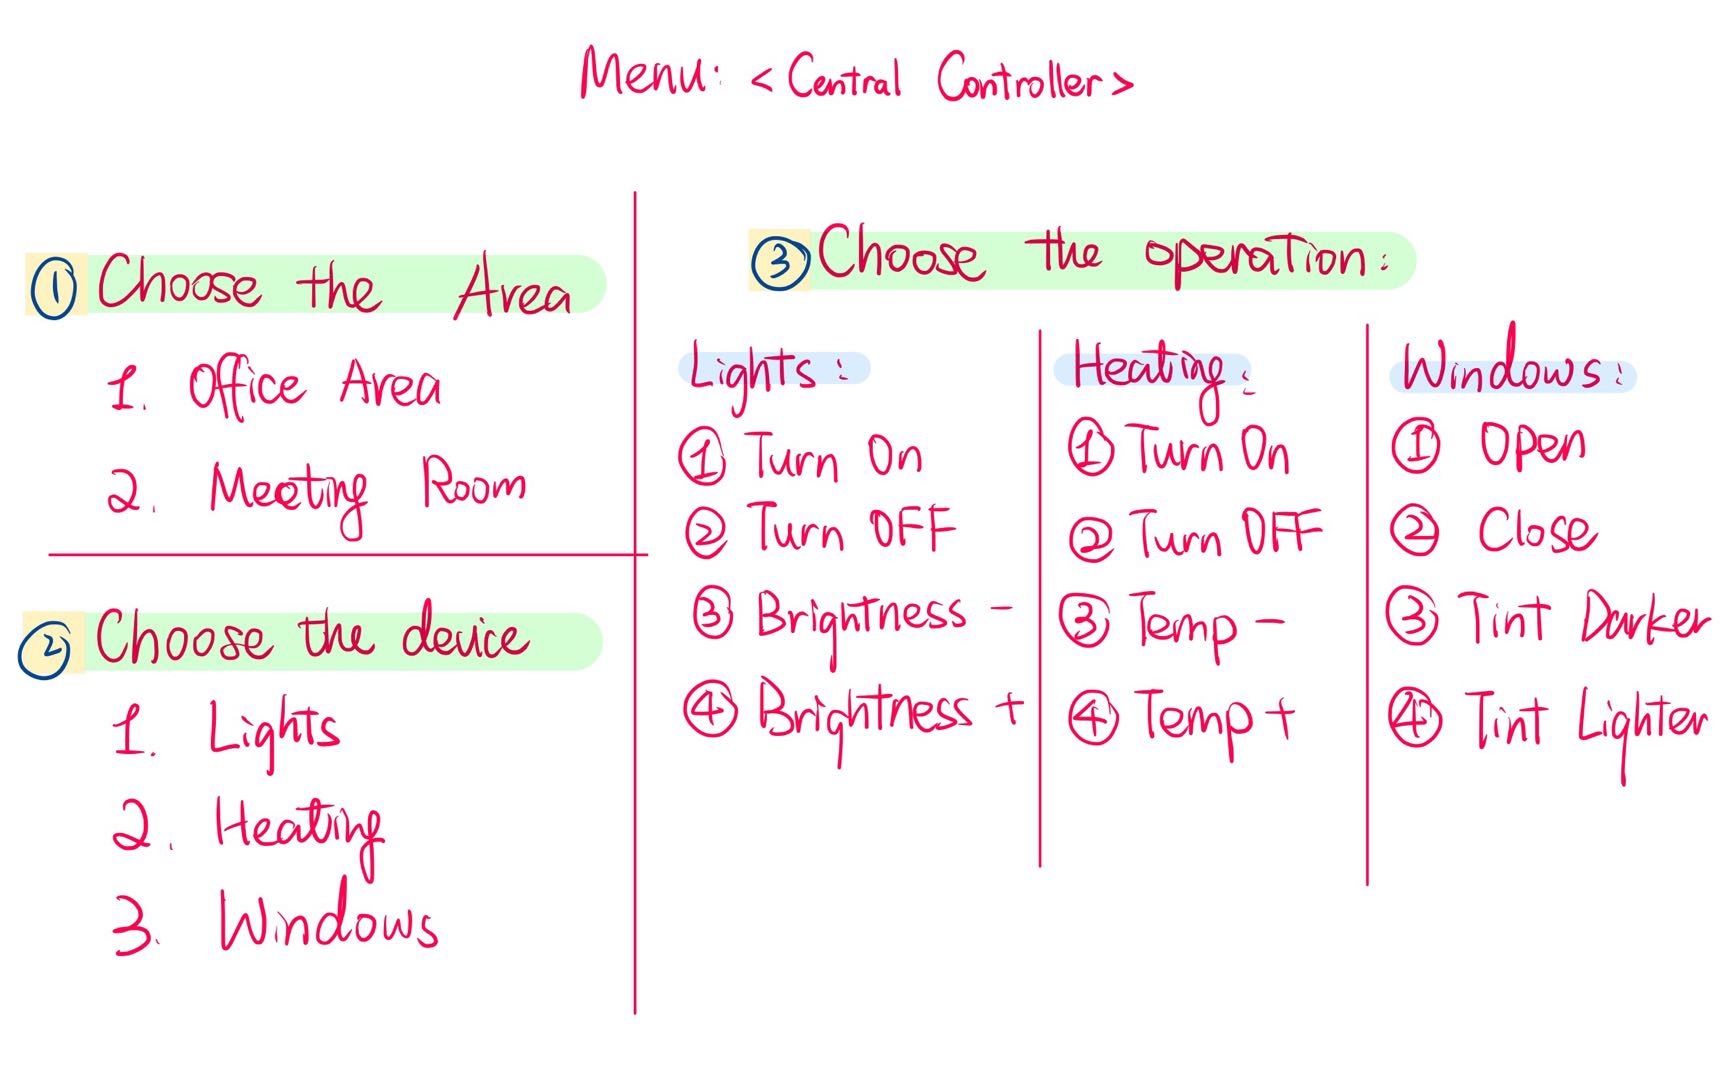 Menu: < Central Controller >
① Choose the Area
1. Office Area
2. Meeting Room
② Choose the device
1. Lights
2. Heating
3. Windows
③ Choose the operation:
Lights:
① Turn On
② Turn OFF
③ Brightness -
④ Brightness +
Heating:
① Turn On
② Turn OFF
③ Temp -
④ Temp +
Windows:
① Open
② Close
③ Tint Darker
④ Tint Lighter